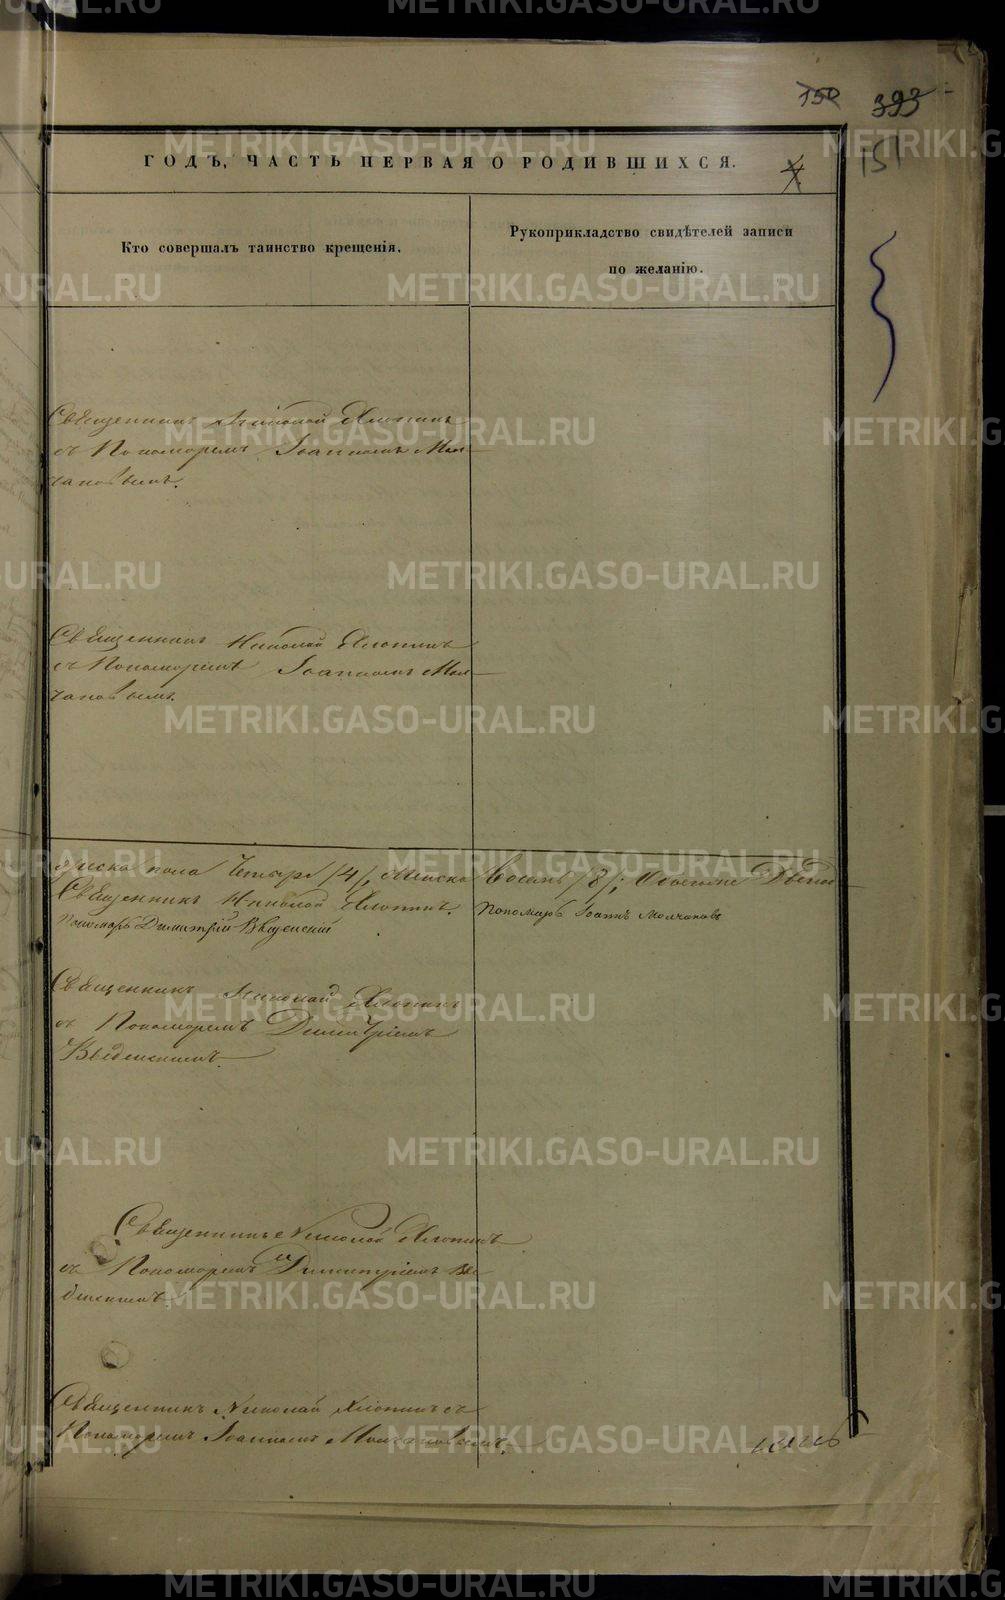 150 393
151
ГОДЪ, ЧАСТЬ ПЕРВАЯ О РОДИВШИХСЯ.
4
Кто совершалъ таинство крещенія.
Рукоприкладство свидѣтелей записи
по желанію.
Священникъ Николай Хлопинъ
съ Пономоремъ Іоанномъ Мол-
чановымъ.
Священникъ Николай Хлопинъ
съ Пономоремъ Іоанномъ Мол-
чановымъ.
мужеска пола Четыре /4/, Женска Восемь /8/; Обоего
Священникъ Николай Хлопинъ.
Пономарь Іоаннъ Молчановъ
Пономарь Димитрій Введенскій
Священникъ Николай Хлопинъ
съ Пономоремъ Димитріемъ
Введенскимъ.
Священникъ Николай Хлопинъ
съ Пономоремъ Димитріемъ Вве
денскимъ.
Священникъ Николай Хлопинъ съ
Пономоремъ Іоанномъ Молчановымъ.
METRIKI.GASO-URAL.RU